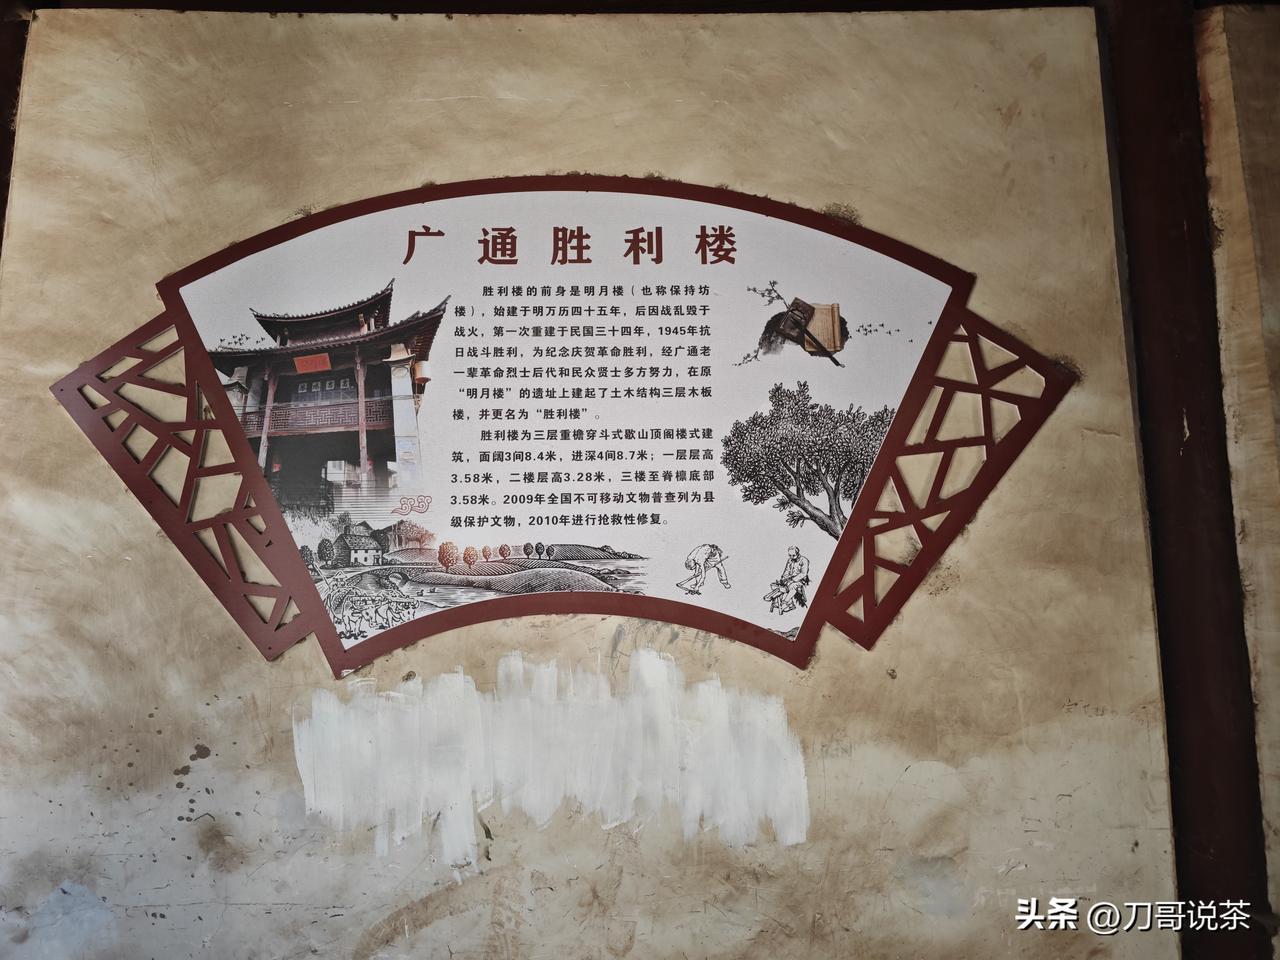 广通胜利楼
胜利楼的前身是明月楼（也称保持坊
楼），始建于明万历四十五年，后因战乱毁于
战火，第一次重建于民国三十四年，1945年抗
日战斗胜利，为纪念庆贺革命胜利，经广通老
一辈革命烈士后代和民众贤士多方努力，在原
“明月楼”的遗址上建起了土木结构三层木板
楼，并更名为“胜利楼”。
胜利楼为三层重檐穿斗式歇山顶阁楼式建
筑，面阔3间8.4米，进深4间8.7米；一层层高
3.58米，二楼层高3.28米，三楼至脊檩底部
3.58米。2009年全国不可移动文物普查列为县
级保护文物，2010年进行抢救性修复。
头条 @刀哥说茶